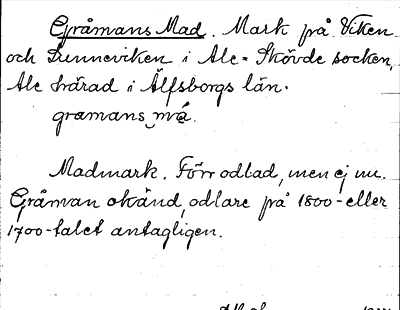 Gråmans Mad. Mark på Viken
och Sunneviken i Ale-Skövde socken,
Ale härad i Älfsborgs län.
gramans ma.
Madmark. Förr odlad, men ej nu.
Gråman okänd, odlare på 1800- eller
1700-talet antagligen.